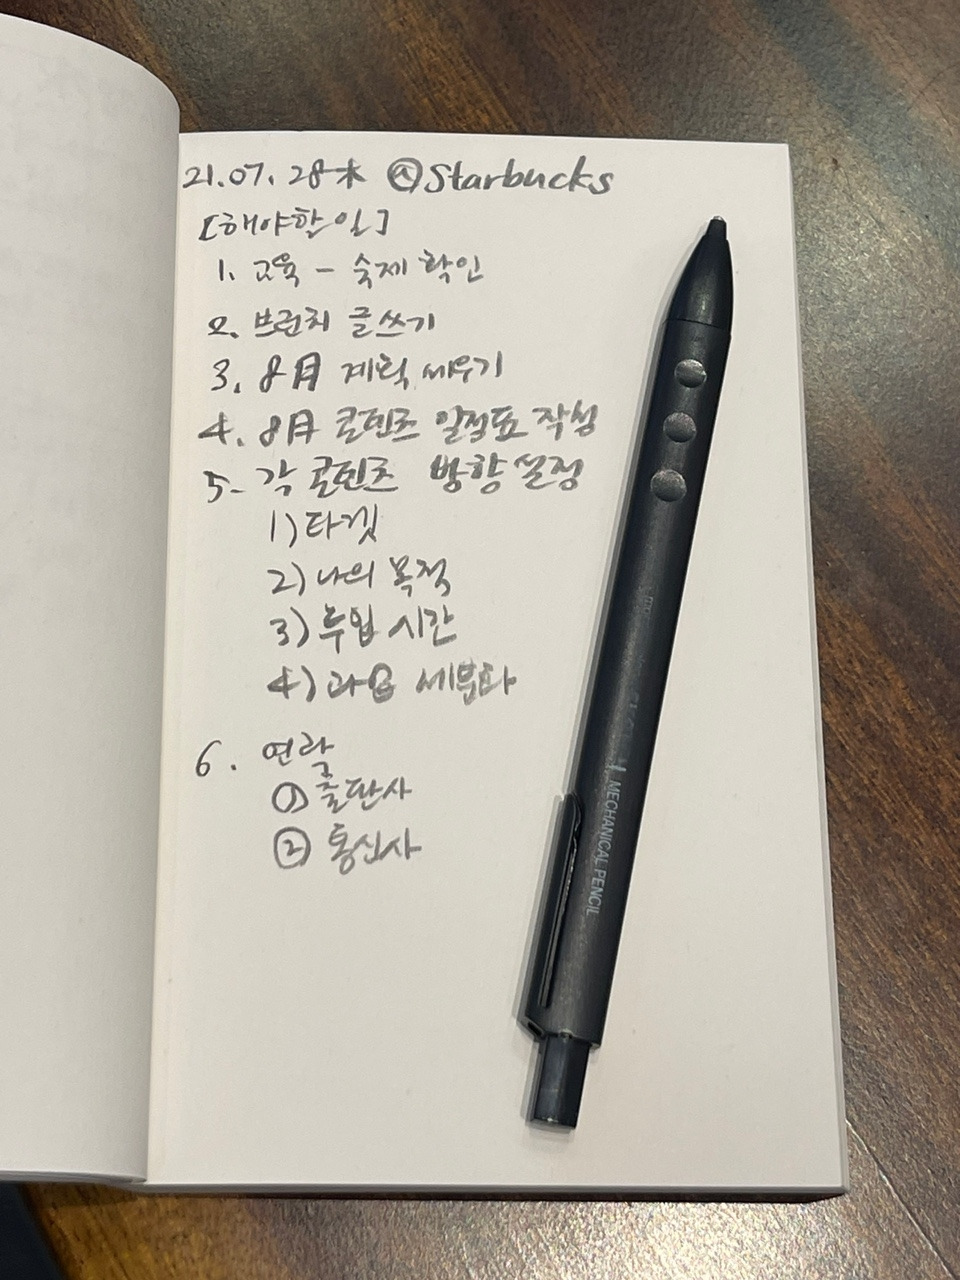 21.07.28 木 @Starbucks
[해야할 일]
1. 교육 - 숙제 확인
2. 브런치 글쓰기
3. 8月 계획 세우기
4. 8月 콘텐츠 일정표 작성
5- 각 콘텐츠 방향 설정
1) 타겟
2) 나의 목적
3) 투입 시간
4) 과업 세분화
6. 연락
① 출판사
② 통신사
MECHANICAL PENCIL